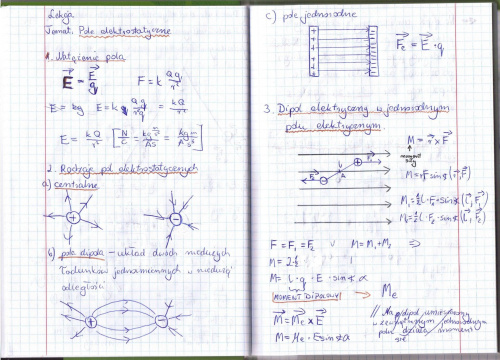 Lekcja
Temat: Pole elektrostatyczne
1. Natężenie pola
E = F/q F = k Qq/r²
E = k Qq/qr² = kQ/r²
E = kQ/r² [N/C = kg m/s² / As = kg m / A s³]
2. Rodzaje pól elektrostatycznych
a) centralne
+
−
b) pole dipola – układ dwóch
ładunków
odległości
+
−
c) pole jednorodne
F = E · q
3. Dipol elektryczny w jednorodnym
polu elektrycznym.
M = r × F
moment siły
M = rF sin∢(r, F)
M₁ = ½ l · F₁ · sin∢(l, F₁)
M₂ = ½ l · F₂ · sin∢(l, F₂)
F = F₁ = F₂ M = M₁ + M₂ ⇒
M = l · q · E · sin∢α
MOMENT DIPOLOWY → Me
M = Me × E
M = Me · E sin∢α
// Na dipol umieszczony
w zewnętrznym jednorodnym
polu działa moment
sił